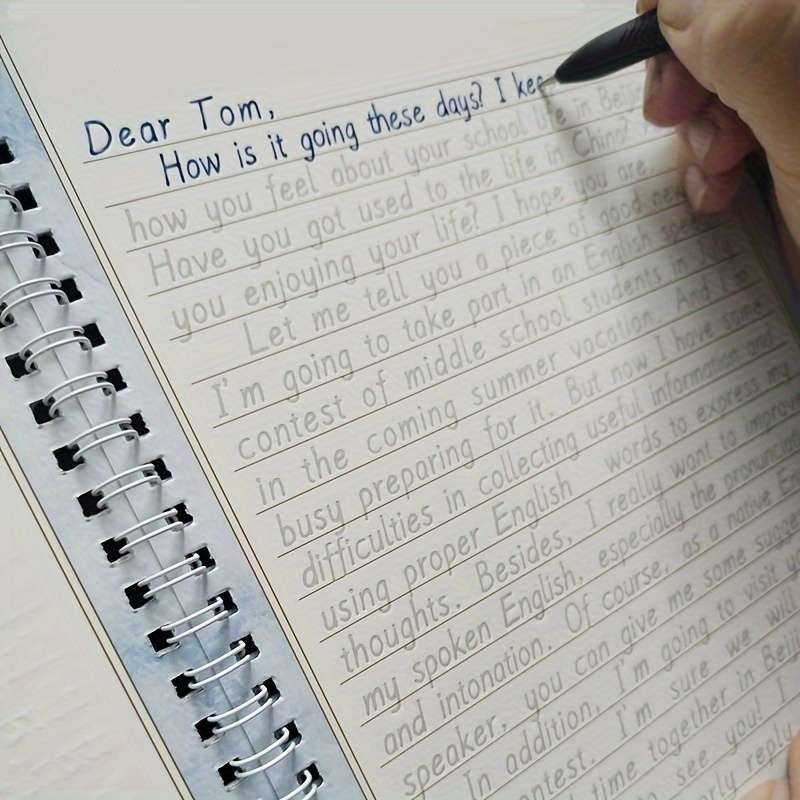 Dear Tom,
How is it going these days? I kee
how you feel about your school life in Beiji
Have you got used to the life in China?
you enjoying your life? I hope you are.
Let me tell you a piece of good new
I'm going to take part in an English spe
contest of middle school students in
in the coming summer vacation. And I'm
busy preparing for it. But now I have some
difficulties in collecting useful information and
using proper English words to express my
thoughts. Besides, I really want to improve
my spoken English, especially the pronunciat
and intonation. Of course, as a native En
speaker, you can give me some sugge
In addition, I'm going to visit y
ontest. I'm sure we will
time together in Beiji
see you! I
rly reply